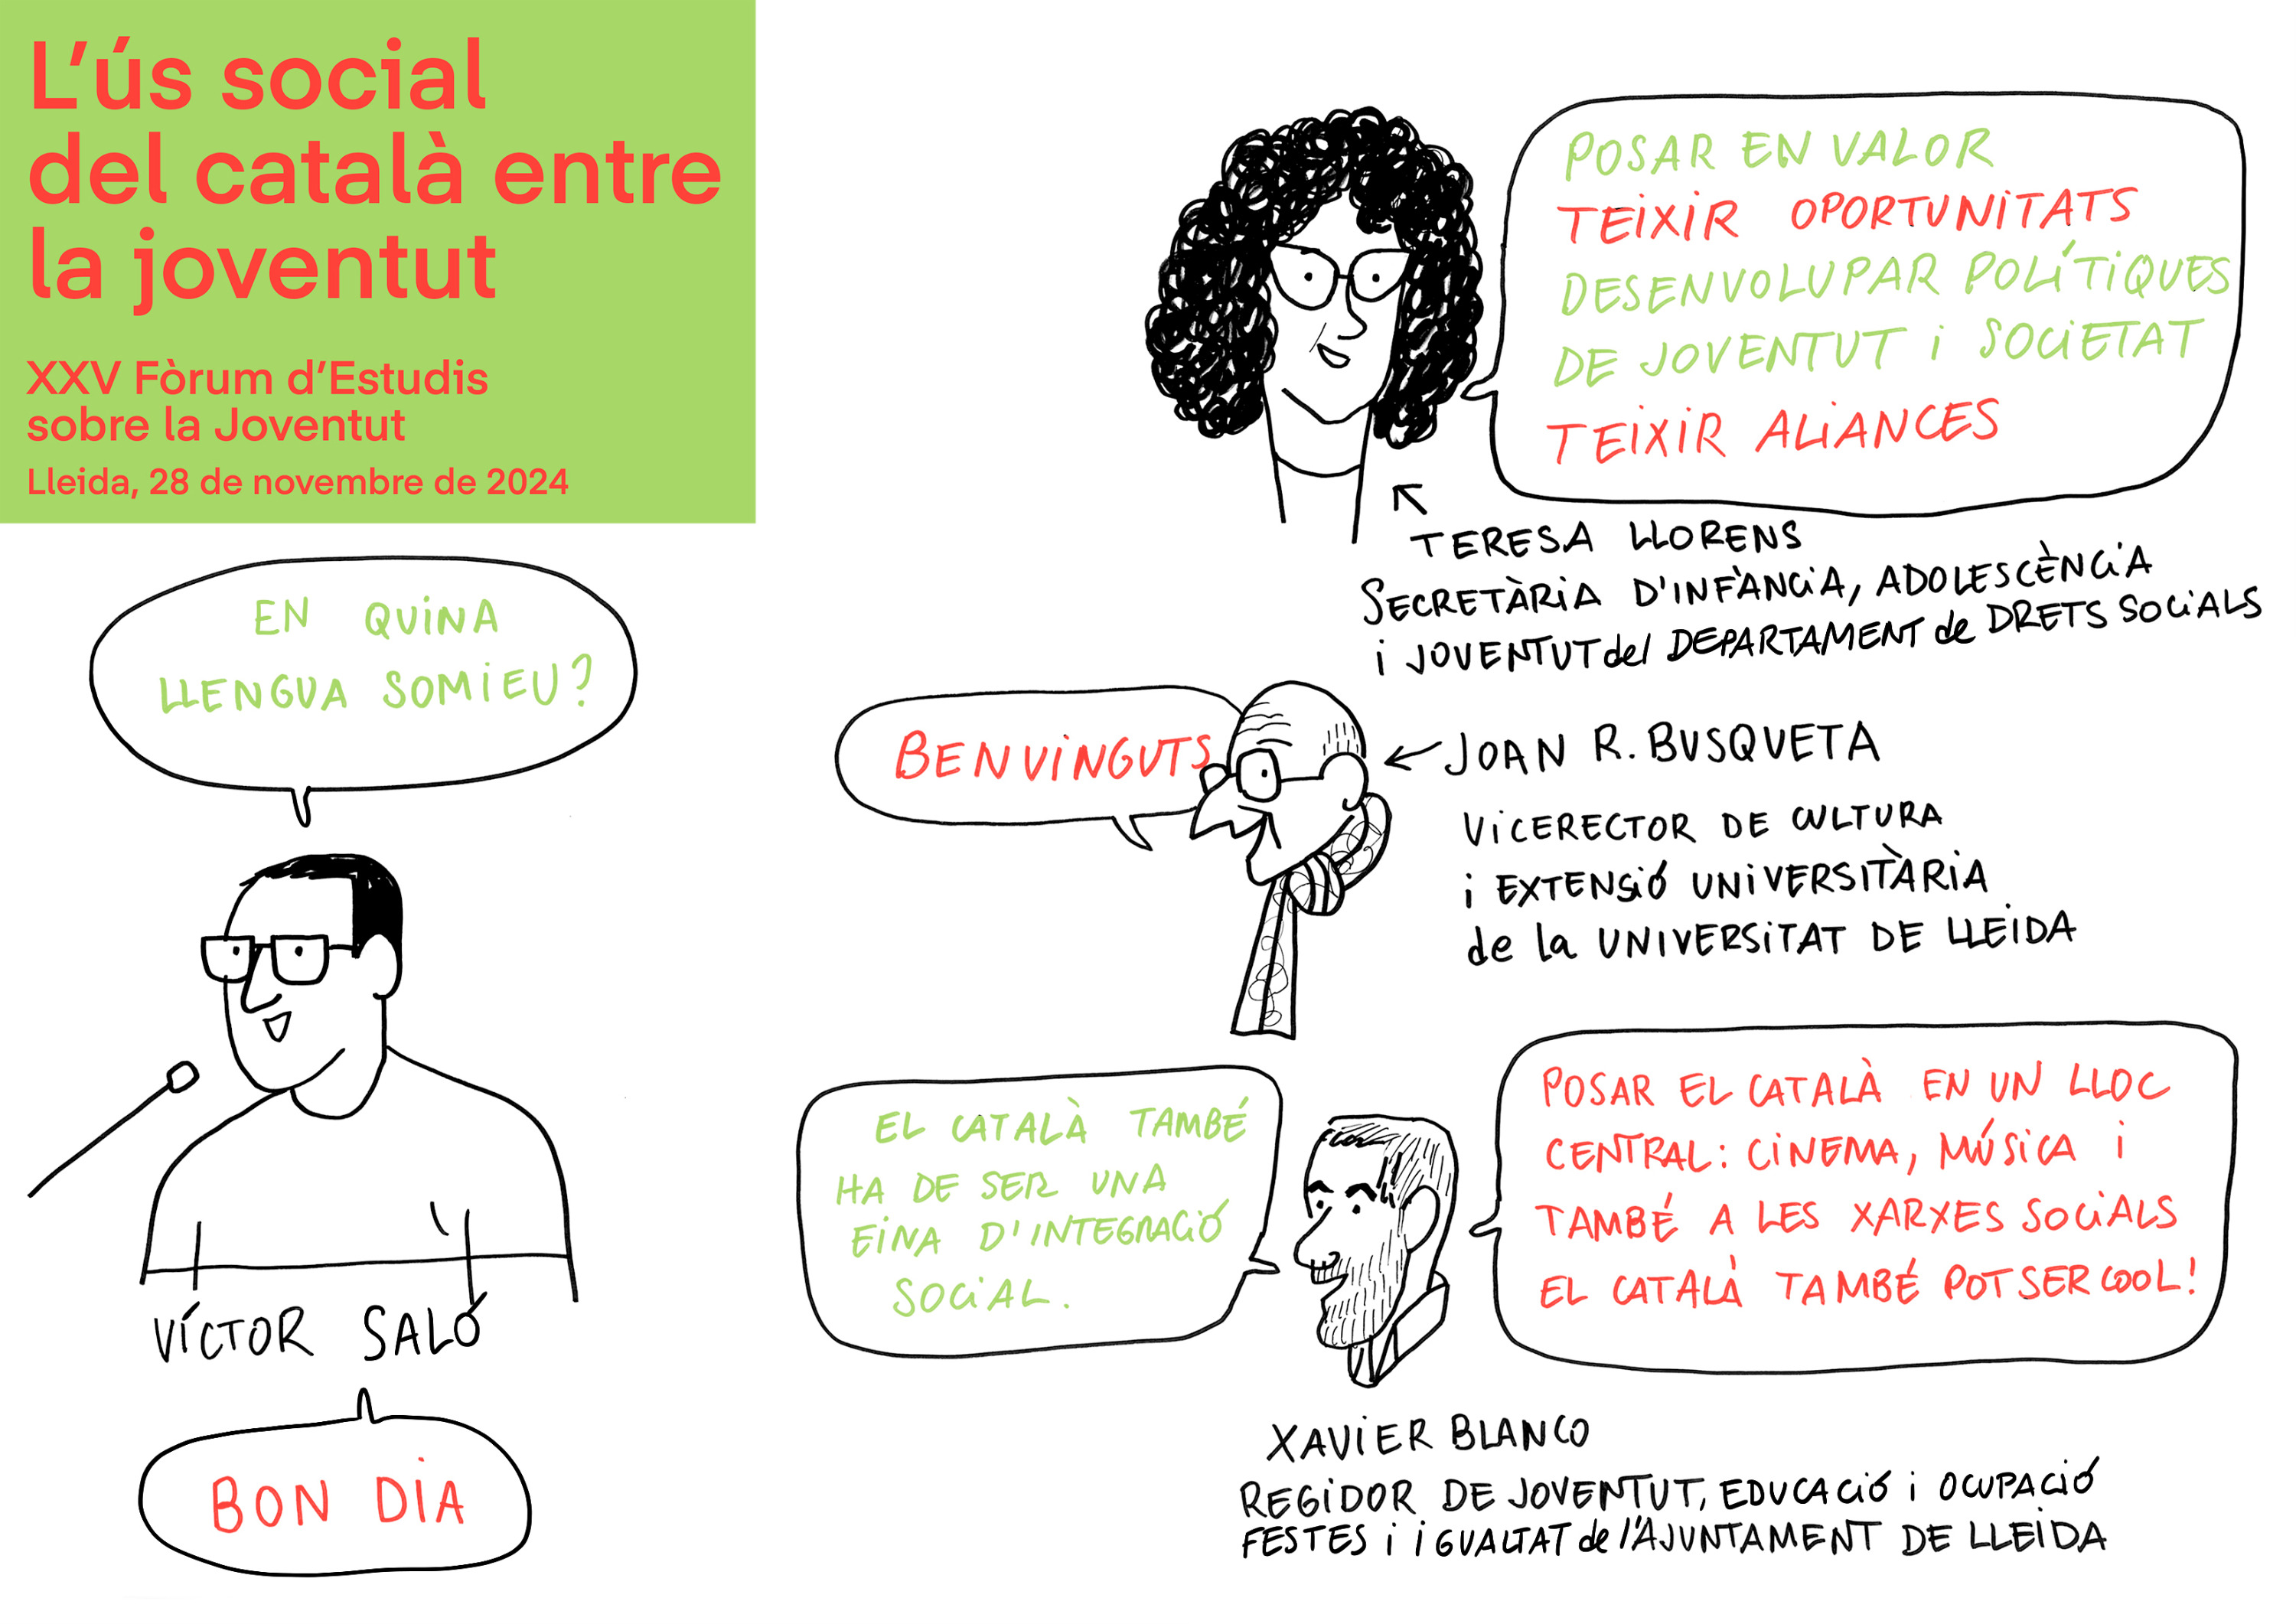 L'ús social
del català entre
la joventut
XXV Fòrum d'Estudis
sobre la Joventut
Lleida, 28 de novembre de 2024
EN QUINA
LLENGUA SOMIEU?
VÍCTOR SALÓ
BON DIA
POSAR EN VALOR
TEIXIR OPORTUNITATS
DESENVOLUPAR POLÍTIQUES
DE JOVENTUT i SOCIETAT
TEIXIR ALIANCES
TERESA LLORENS
SECRETÀRIA D'INFÀNCIA, ADOLESCÈNCIA
i JOVENTUT del DEPARTAMENT de DRETS SOCIALS
BENVINGUTS
JOAN R. BUSQUETA
VICERECTOR DE CULTURA
i EXTENSIÓ UNIVERSITÀRIA
de la UNIVERSITAT DE LLEIDA
EL CATALÀ TAMBÉ
HA DE SER UNA
EINA D'INTEGRACIÓ
SOCIAL.
POSAR EL CATALÀ EN UN LLOC
CENTRAL: CINEMA, MÚSICA i
TAMBÉ A LES XARXES SOCIALS
EL CATALÀ TAMBÉ POT SER COOL!
XAVIER BLANCO
REGIDOR DE JOVENTUT, EDUCACIÓ i OCUPACIÓ
FESTES i IGUALTAT de l'AJUNTAMENT DE LLEIDA